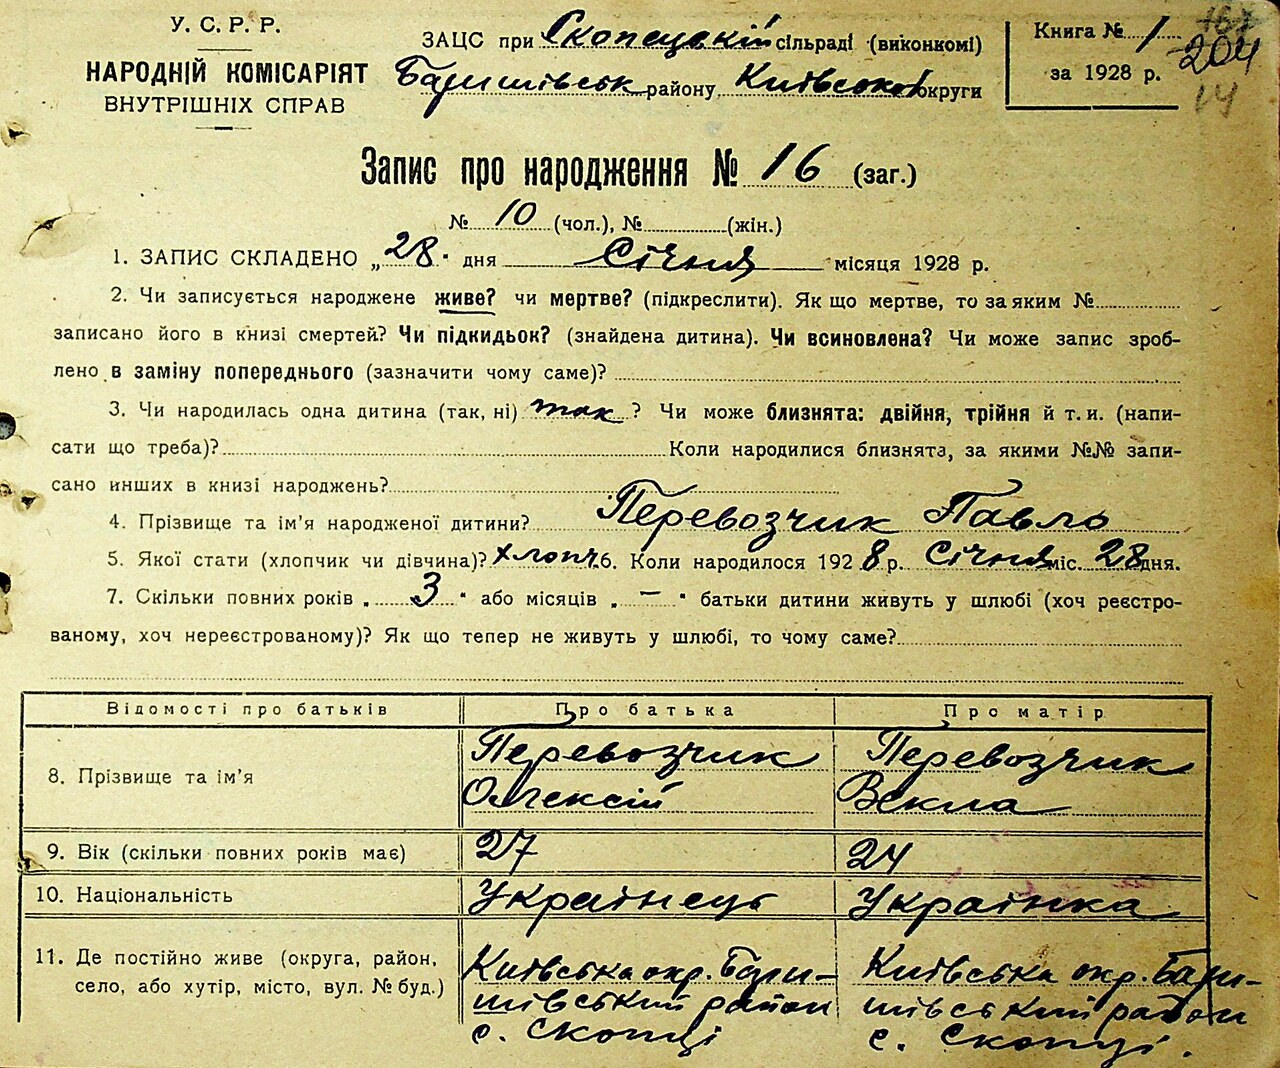 У. С. Р. Р.
НАРОДНІЙ КОМІСАРІЯТ
ВНУТРІШНІХ СПРАВ
ЗАЦС при Скопецькій сільраді (виконкомі)
Баришівськ району Київської округи
Книга № 1
за 1928 р.
204
14
Запис про народження № 16 (заг.)
№ 10 (чол.), № (жін.)
1. ЗАПИС СКЛАДЕНО „28" дня Січня місяця 1928 р.
2. Чи записується народжене живе? чи мертве? (підкреслити). Як що мертве, то за яким №
записано його в книзі смертей? Чи підкидьок? (знайдена дитина). Чи всиновлена? Чи може запис зроб-
лено в заміну попереднього (зазначити чому саме)?
3. Чи народилась одна дитина (так, ні) так? Чи може близнята: двійня, трійня й т. и. (напи-
сати що треба)? Коли народилися близнята, за якими №№ запи-
сано инших в книзі народжень?
4. Прізвище та ім'я народженої дитини? Перевозчик Павло
5. Якої стати (хлопчик чи дівчина)? хлопч. 6. Коли народилося 1928 р. Січня міс. 28 дня.
7. Скільки повних років „3" або місяців „–" батьки дитини живуть у шлюбі (хоч реєстро-
ваному, хоч нереєстрованому)? Як що тепер не живуть у шлюбі, то чому саме?
Відомості про батьків Про батька Про матір
8. Прізвище та ім'я Перевозчик Олексій Перевозчик Векла
9. Вік (скільки повних років має) 27 24
10. Національність Українець Українка
11. Де постійно живе (округа, район,
село, або хутір, місто, вул. № буд.)
Київська окр. Бари-
шівський район
с. Скопці
Київська окр. Бари-
шівський район
с. Скопці.